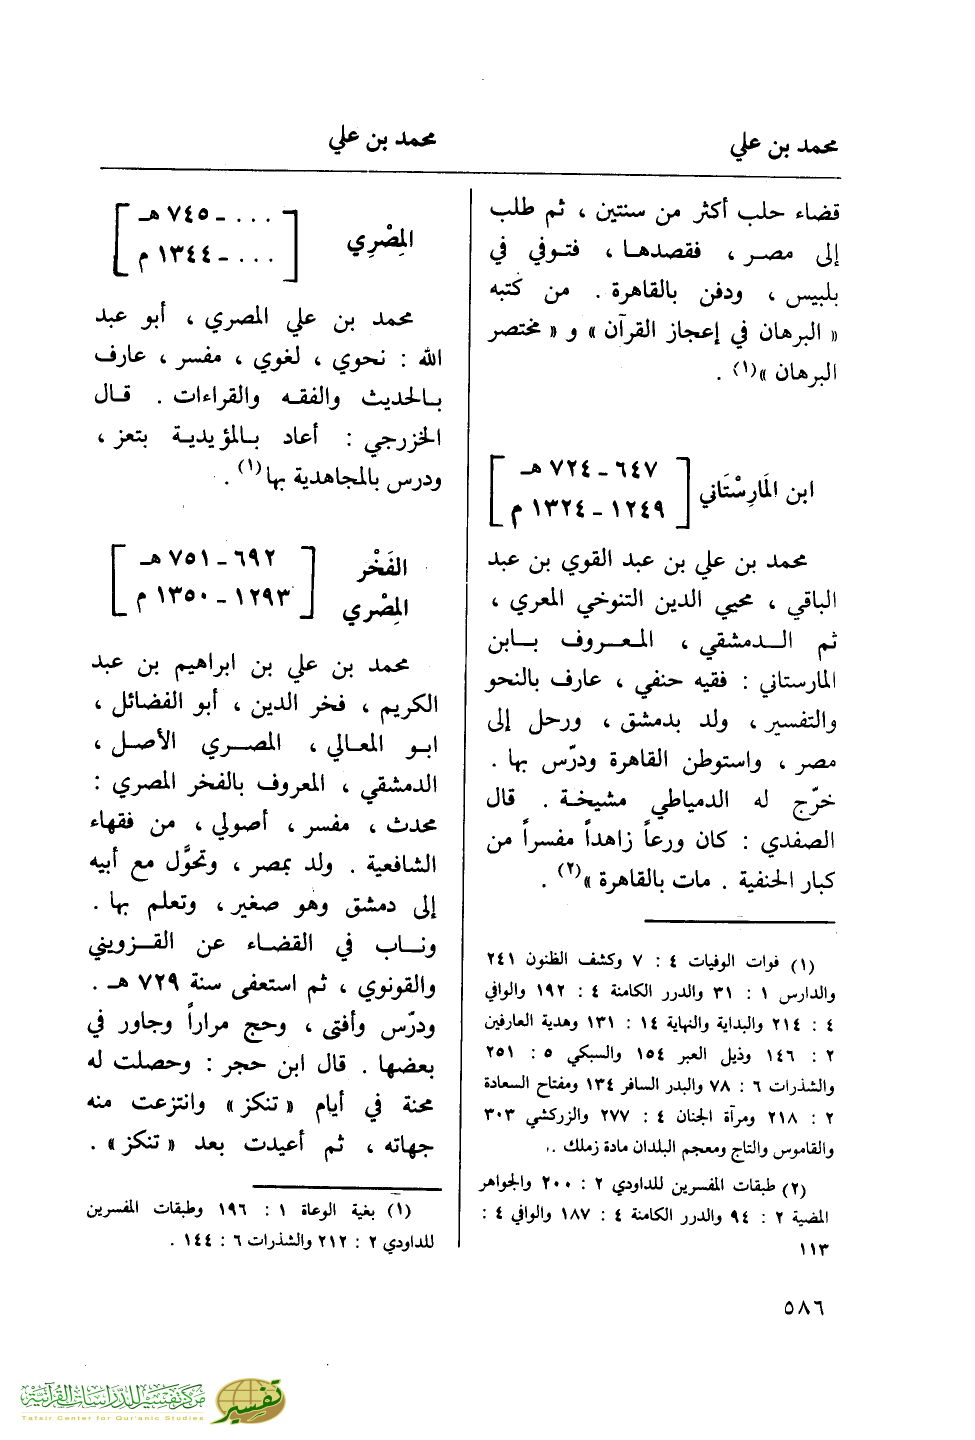 محمد بن علي
محمد بن علي
قضاء حلب أكثر من سنتين ، ثم طلب
إلى مصر ، فقصدها ، فتوفي في
بلبيس ، ودفن بالقاهرة . من كتبه
« البرهان في إعجاز القرآن » و « مختصر
البرهان »(١) .
ابن المَارِسْتَاني
[ ٦٤٧ ـ ٧٢٤ هـ
١٢٤٩ ـ ١٣٢٤ م ]
محمد بن علي بن عبد القوي بن عبد
الباقي ، محيي الدين التنوخي المعري ،
ثم الدمشقي ، المعروف بابن
المارستاني : فقيه حنفي ، عارف بالنحو
والتفسير ، ولد بدمشق ، ورحل إلى
مصر ، واستوطن القاهرة ودرّس بها .
خرّج له الدمياطي مشيخة . قال
الصفدي : كان ورعاً زاهداً مفسراً من
كبار الحنفية . مات بالقاهرة »(٢) .
(١) فوات الوفيات ٤ : ٧ وكشف الظنون ٢٤١
والدارس ١ : ٣١ والدرر الكامنة ٤ : ١٩٢ والوافي
٤ : ٢١٤ والبداية والنهاية ١٤ : ١٣١ وهدية العارفين
٢ : ١٤٦ وذيل العبر ١٥٤ والسبكي ٥ : ٢٥١
والشذرات ٦ : ٧٨ والبدر السافر ١٣٤ ومفتاح السعادة
٢ : ٢١٨ ومرآة الجنان ٤ : ٢٧٧ والزركشي ٣٠٣
والقاموس والتاج ومعجم البلدان مادة زملك ..
(٢) طبقات المفسرين للداودي ٢ : ٢٠٠ والجواهر
المضية ٢ : ٩٤ والدرر الكامنة ٤ : ١٨٧ والوافي ٤ :
١١٣
المِصْرِي
[ . . . ـ ٧٤٥ هـ
. . . ـ ١٣٤٤ م ]
محمد بن علي المصري ، أبو عبد
الله : نحوي ، لغوي ، مفسر ، عارف
بالحديث والفقه والقراءات . قال
الخزرجي : أعاد بالمؤيدية بتعز ،
ودرس بالمجاهدية بها(١) .
الفَخْر
المِصْري
[ ٦٩٢ ـ ٧٥١ هـ
١٢٩٣ ـ ١٣٥٠ م ]
محمد بن علي بن ابراهيم بن عبد
الكريم ، فخر الدين ، أبو الفضائل ،
ابو المعالي ، المصري الأصل ،
الدمشقي ، المعروف بالفخر المصري :
محدث ، مفسر ، أصولي ، من فقهاء
الشافعية . ولد بمصر ، وتحوَّل مع أبيه
إلى دمشق وهو صغير ، وتعلم بها .
وناب في القضاء عن القزويني
والقونوي ، ثم استعفى سنة ٧٢٩ هـ .
ودرّس وأفتى ، وحج مراراً وجاور في
بعضها . قال ابن حجر : وحصلت له
محنة في أيام « تنكز » وانتزعت منه
جهاته ، ثم أعيدت بعد « تنكز » .
(١) بغية الوعاة ١ : ١٩٦ وطبقات المفسرين
للداودي ٢ : ٢١٢ والشذرات ٦ : ١٤٤ .
٥٨٦
مركز تفسير للدراسات القرآنية
Tafsir Center for Qur'anic Studies
تفسير